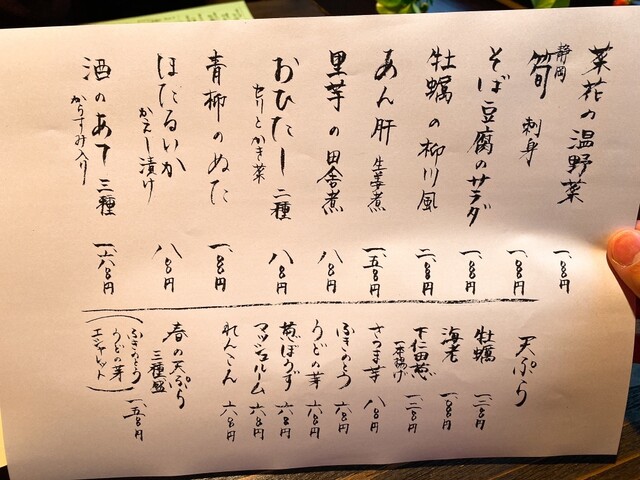 菜花の温野菜 一、〇〇〇円
静岡 筍 刺身 一、〇〇〇円
そば豆腐のサラダ 一、〇〇〇円
牡蠣の柳川風 二、〇〇〇円
あん肝 生姜煮 一、五〇〇円
里芋の田舎煮 八〇〇円
おひたし二種 八〇〇円
せりとかき菜
青柳のぬた 一、〇〇〇円
ほたるいか 八〇〇円
かえし漬け
酒のあて三種 一、六〇〇円
からすみ入り
天ぷら
牡蠣 一、二〇〇円
海老 一、〇〇〇円
下仁田葱 一、二〇〇円
一本揚げ
さつま芋 八〇〇円
ふきのとう 六〇〇円
うどの芽 六〇〇円
葱ぼうず 六〇〇円
マッシュルーム 六〇〇円
れんこん 六〇〇円
春の天ぷら
三種盛
(ふきのとう
うどの芽
エシャレット)
一、五〇〇円